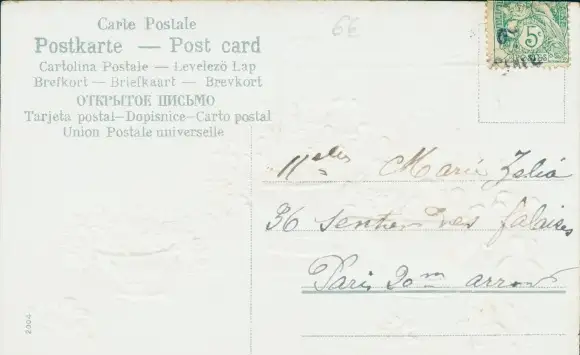 Carte Postale
Postkarte — Post card
Cartolina Postale — Levelező Lap
Brefkort — Briefkaart — Brevkort
ОТКРЫТОЕ ПИСЬМО
Tarjeta postal—Dopisnice—Carto postal
Union Postale universelle
66
5c
Melles Marie Zélia
36 Sentier des falaises
Paris 20m arron
2004